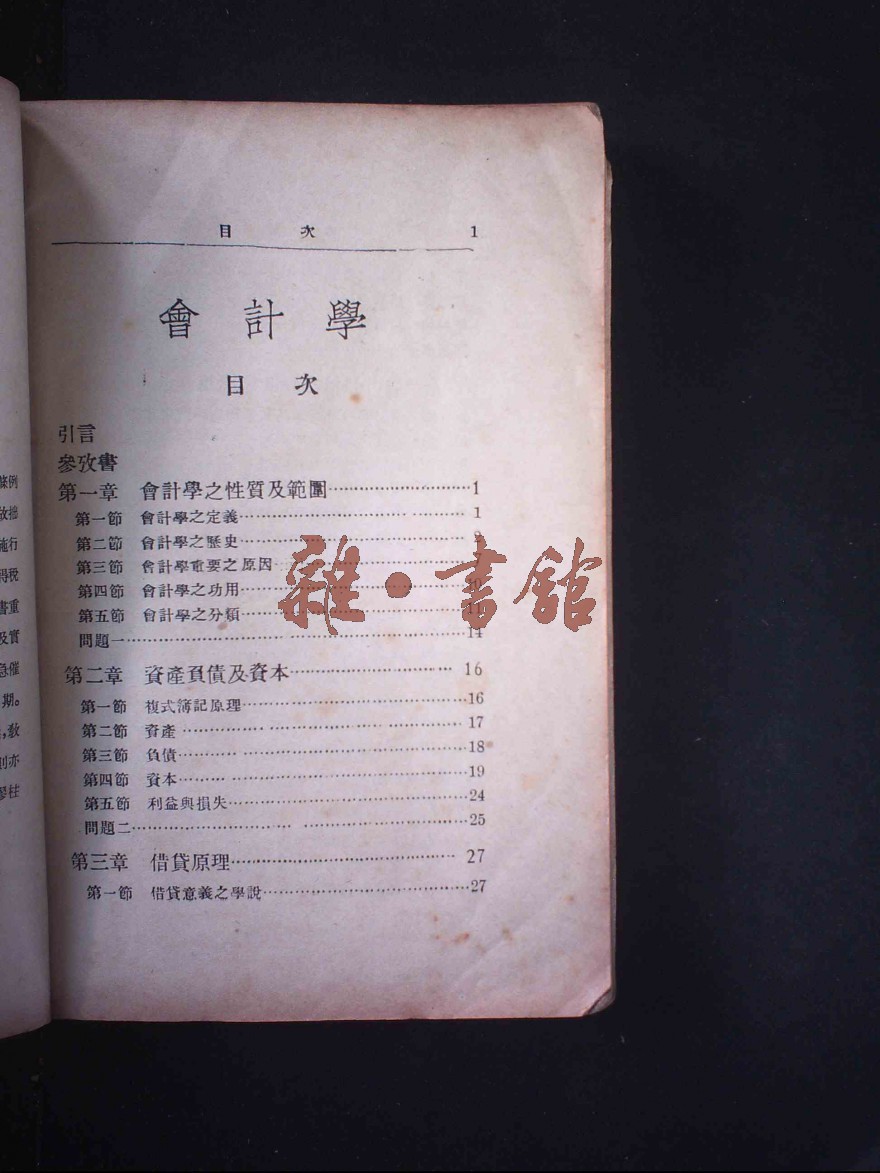 條例
施行
得稅
書重
及實
急催
期。
目 次 1
會 計 學
目 次
引言
參攷書
第一章 會計學之性質及範圍 1
第一節 會計學之定義 1
第二節 會計學之歷史
第三節 會計學重要之原因
第四節 會計學之功用 10
第五節 會計學之分類 11
問題一 14
第二章 資產負債及資本 16
第一節 複式簿記原理 16
第二節 資產 17
第三節 負債 18
第四節 資本 19
第五節 利益與損失 24
問題二 25
第三章 借貸原理 27
第一節 借貸意義之學說 27
雜·書館